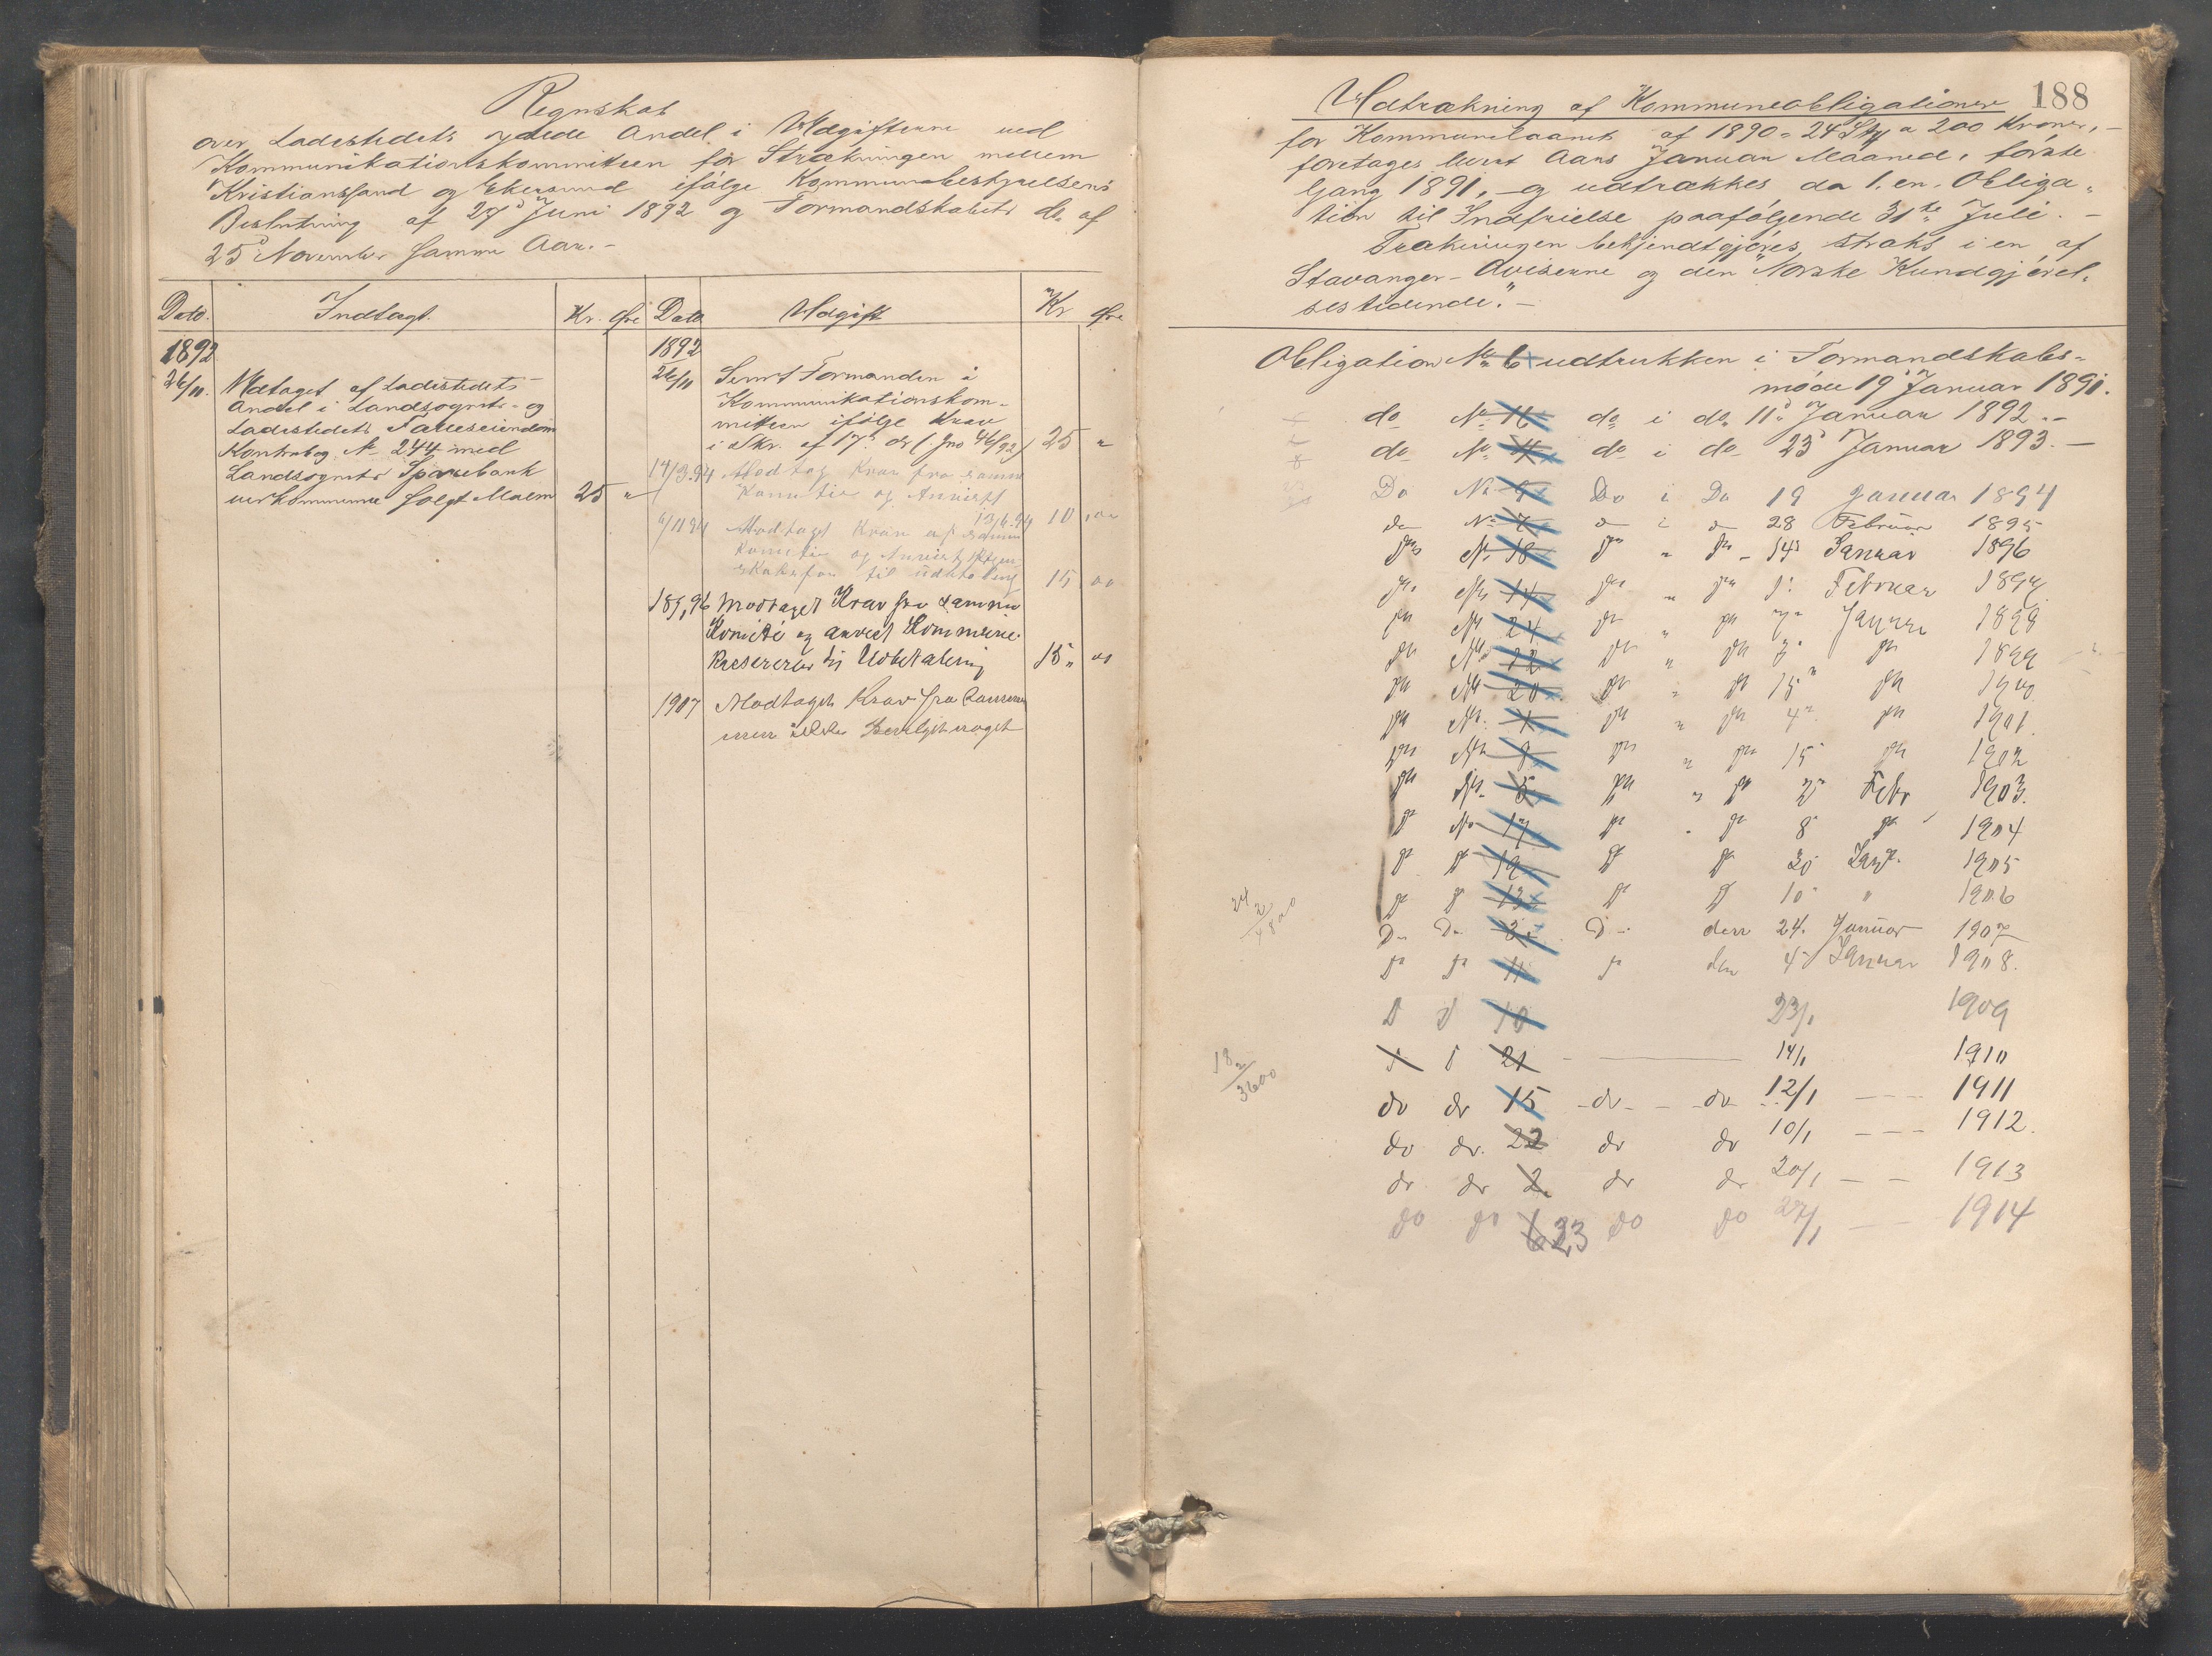 Regnskab
over Ladestedets ydede Andel i Udgifterne ved
Kommunikationskommiteen for Strækningen mellem
Kristianssand og Ekersund ifølge Kommunebestyrelsens
Beslutning af 27d Juni 1892 og Formandskabets do af
25d November samme Aar.-
Dato. Indtægt. Kr. Øre Dato Udgift Kr Øre
1892
26/11. Udtaget af Ladestedets
Andel i Landsognets- og
Ladestedets Fælleseiendom
Kontrabog № 244 med
Landsognets Sparebank
solgt Malm 25 "
1892
26/11 Sendt Formanden i
Kommunikationskom-
miteen ifølge Krav
i Skr. af 17d ds (Jno 46/92) 25 "
14/3.94 Modtog Krav fra samme
Komitee og Anvist
13/6.94 10 ,00
6/11 94 Modtaget Krav af samme
Komitee og Anvist
til Udbetaling 15 00
189,96 Modtaget Krav fra samme
Komité og anvist Kommune
Kassereren til Udbetaling 15 " 00
1907 Modtaget Krav fra
men ikke Bevilget noget
188
Udtrækning af Kommuneobligationer
for Kommunelaanet af 1890 = 24 Stk a 200 Kroner, -
foretages hvert Aars Januar Maaned, første
Gang 1891, - og udtrækkes da 1. en. Obliga-
tion til Indfrielse paafølgende 31te Juli. -
Trækningen bekjendtgjøres straks i en af
Stavanger-Aviserne og den "Norske Kundgjørel-
sestidende". -
Obligation № 6 udtrukken i Formandskabs-
møde 19d Januar 1891.
do № 16 do i do 11d Januar 1892. -
do № 4 do i do 23d Januar 1893. -
Do № 9 Do i Do 19 Januar 1894
do № 7 do i do 28 Februar 1895
do № 18 do " do - 14d Januar 1896
do № 14 do " do 1. Februar 1897
do № 24 do " do 7 Januar 1898
do № 12 do " do 3 do 1899
do № 20 do " do 15 do 1900
do № 1 do " do 4 do 1901
do № 8 do " do 15 do 1902
do № 5 do " do 2 Febr 1903.
do No 17 do " do 8 do 1904
do do 19 do do 30 Jan. 1905
do do 13 do do 10 " 1906
Do Do 3 Do den 24. Januar 1907
do do 11 do den 4 Januar 1908.
D d 10 23/1 1909
d 21 14/1 1910
do do 15 - do - do 12/1 - - - 1911
do do. 22 do do 10/1 - - - 1912.
do do 2 do do 20/1 - - 1913
do do 23 do do 27/1 - - 1914
24
2
4800
18
2
3600